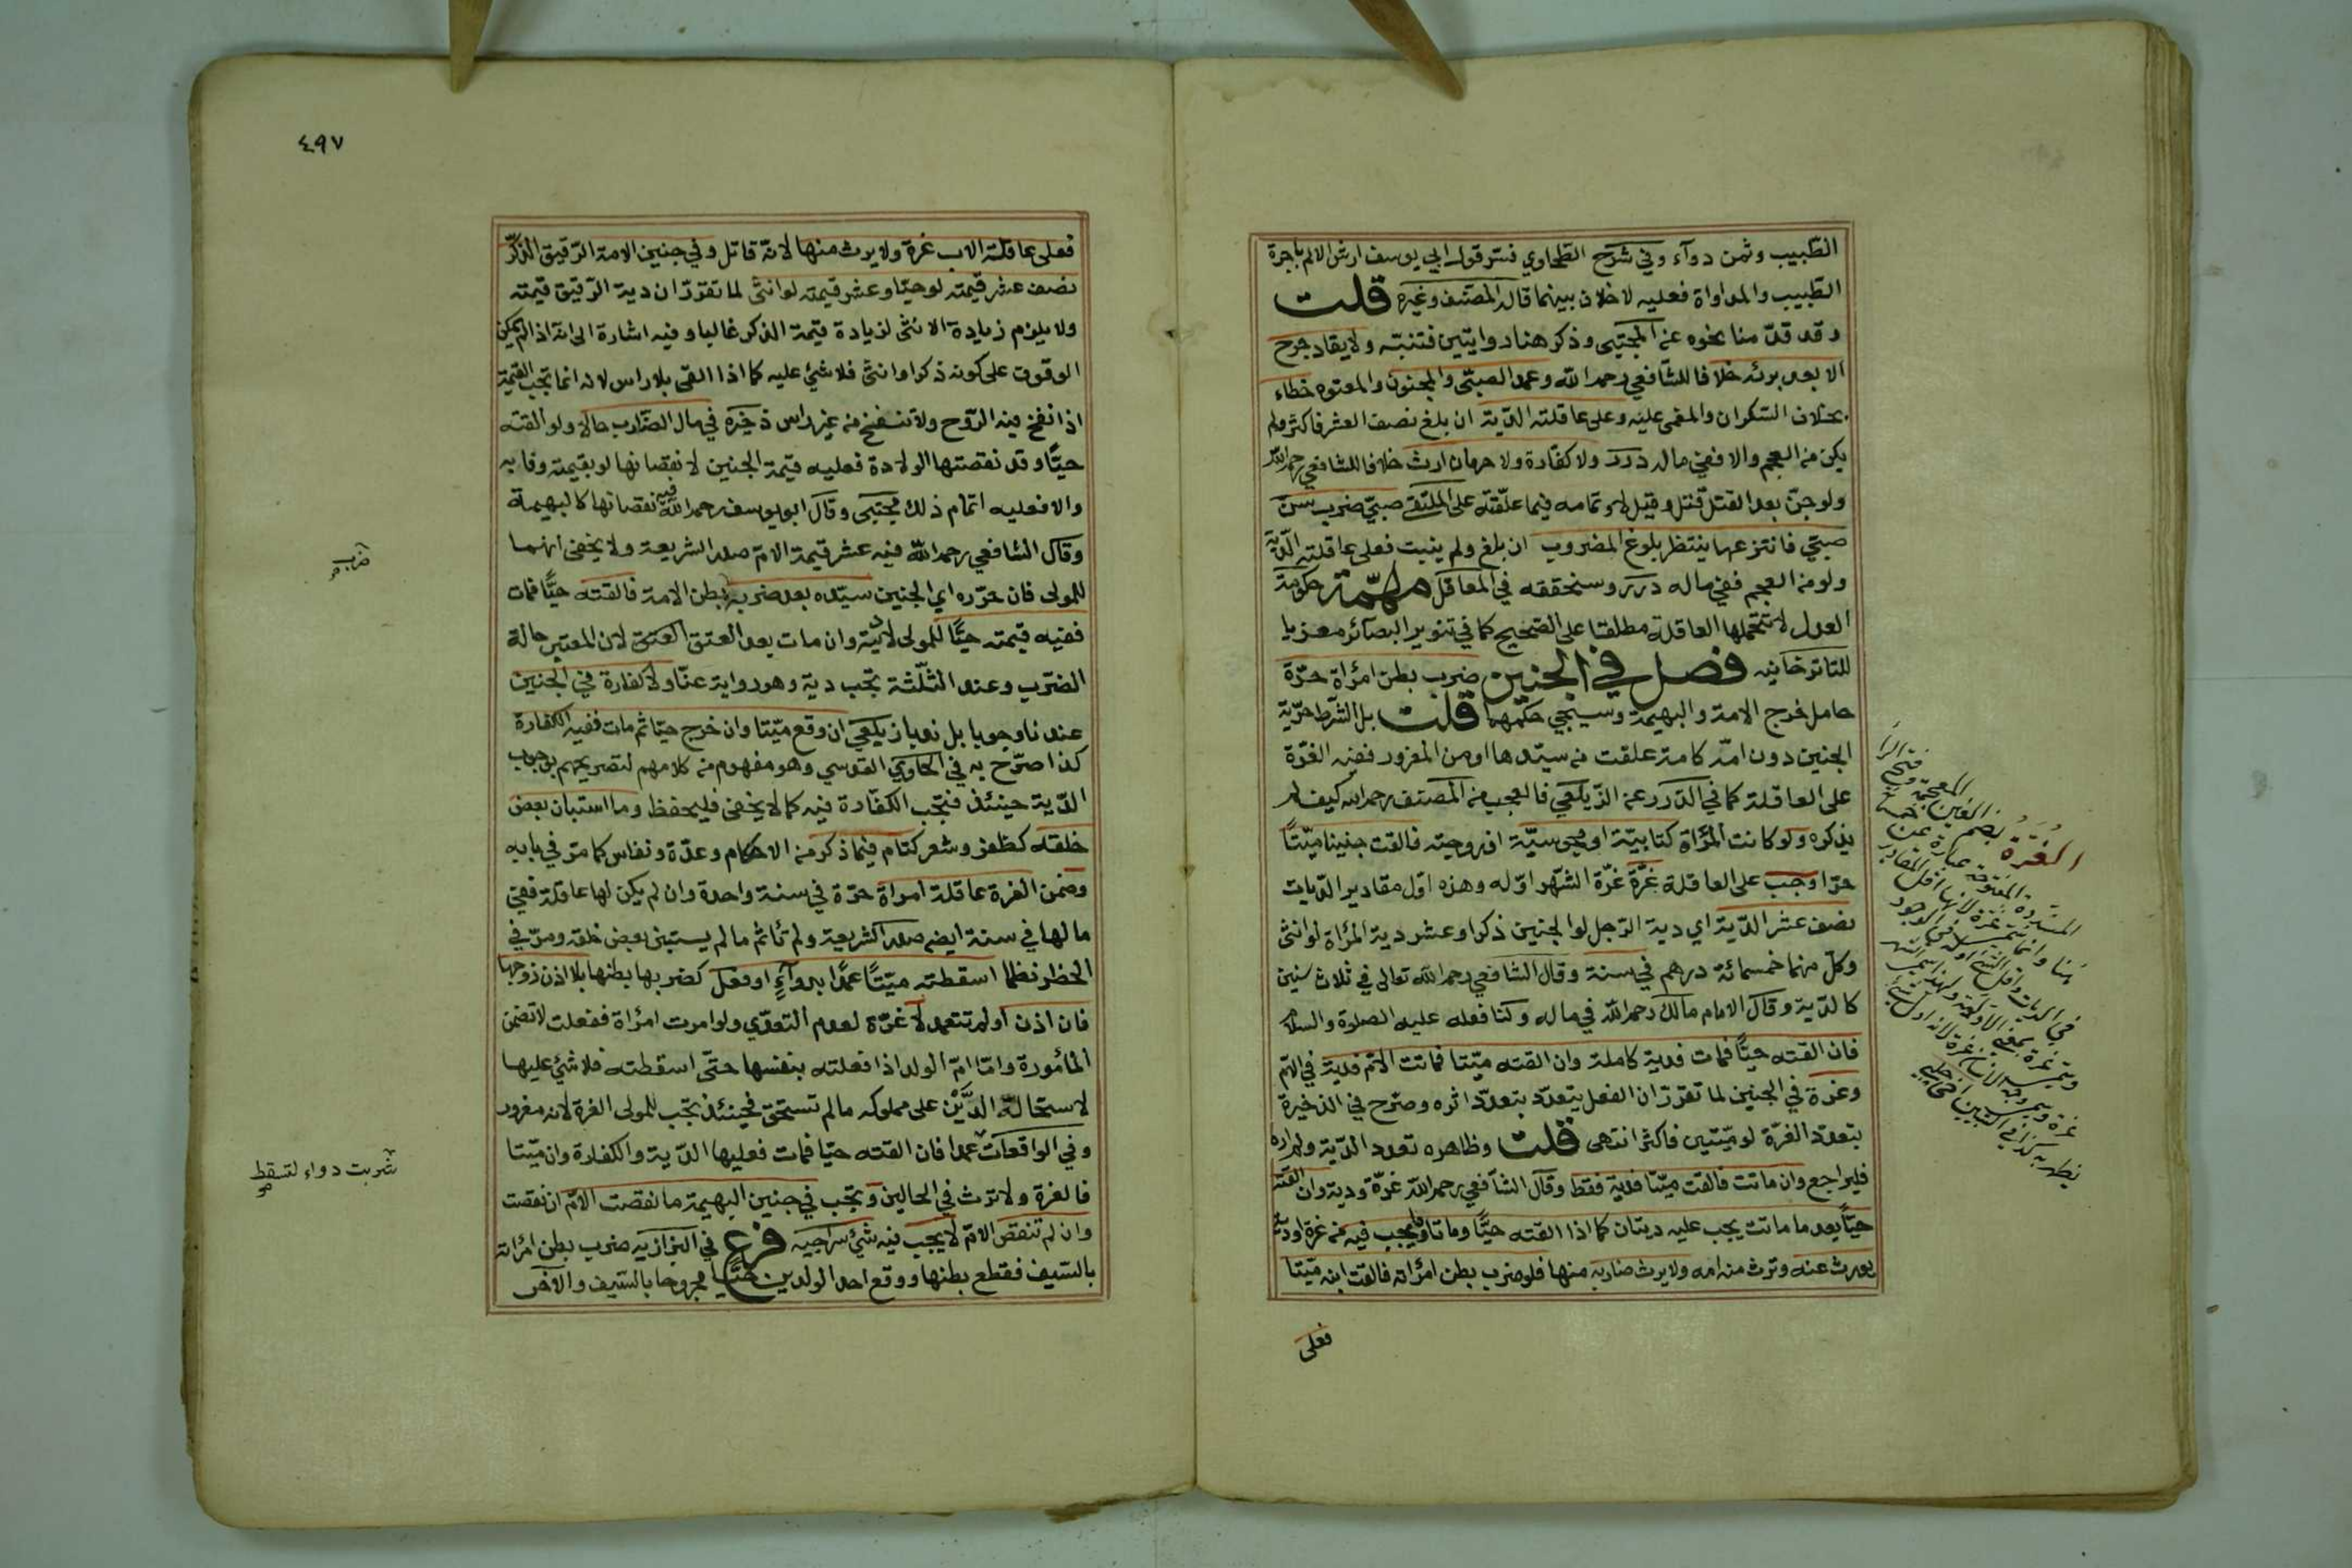 الطبيب وثمن دوآء وفي شرح الطحاوي فسر قول ابي يوسف ارش الالم باجرة
الطبيب والمداواة فعليه لا خلاف بينهما قاله المصنف وغيره قلت
وقد قدمنا نحوه عن المجتبى وذكر هنا روايتين فتنبه ولا يقاد جرح
الا بعد برئه خلافا للشافعي رحمه الله وعمد الصبي والمجنون والمعتوه خطاء
بخلاف السكران والمغمى عليه وعلى عاقلته الدية ان بلغ نصف العشر فاكثر ولم
يكن من العجم والا ففي ماله درر ولا كفارة ولا حرمان ارث خلافا للشافعي رحمه الله
ولو جن بعد القتل قتل وقيل لا وتمامه فيما علقته على الملتقى صبي ضرب سن
صبي فانتزعها ينتظر بلوغ المضروب ان بلغ ولم ينبت فعلى عاقلته الدية
ولو من العجم ففي ماله درر وسنحققه في المعاقل مهمة حكومة
العدل لا تتحملها العاقلة مطلقا على الصحيح كما في تنوير البصآئر معزيا
للتاترخانيه فصل في الجنين ضرب بطن امرأة حرة
حامل خرج الامة والبهيمة وسيجي حكمهما قلت بل الشرط حرية
الجنين دون امه كامة علقت من سيدها او من المغرور ففيه الغرة
على العاقلة كما في الدرر عن الزيلعي فالعجب من المصنف رحمه الله كيف لم
يذكره ولو كانت المرأة كتابية او مجوسية او زوجته فالقت جنينا ميتا
حرا وجب على العاقلة غرة غرة الشهر اوله وهذه اول مقادير الديات
نصف عشر الدية اي دية الرجل لو الجنين ذكرا وعشر دية المرأة لو انثى
وكل منهما خمسمائة درهم في سنة وقال الشافعي رحمه الله تعالى في ثلاث سنين
كالدية وقال الامام مالك رحمه الله في ماله ولنا فعله عليه الصلوة والسلام
فان القته حيا فمات فدية كاملة وان القته ميتا فماتت الام فدية في الام
وغرة في الجنين لما تقرر ان الفعل يتعدد بتعدد اثره وصرح في الذخيرة
بتعدد الغرة لو ميتين فاكثر انتهى قلت وظاهره تعدد الدية ولم اره
فليراجع وان ماتت فالقت ميتا فدية فقط وقال الشافعي رحمه الله غرة ودية وان القته
حيا بعد ما ماتت يجب عليه ديتان كما اذا القته حيا وماتا وما يجب فيه من غرة او دية
يورث عنه وترث منه امه ولا يرث ضاربه منها فلو ضرب بطن امرأته فالقت ابنه ميتا
فعلى
الغرة بضم الغين المعجمة وفتح الرا
المشددة المفتوحة عبارة عن
٤٩٧
فعلى عاقلة الاب غرة ولا يرث منها لانه قاتل وفي جنين الامة الرقيق الذكر
نصف عشر قيمته لو حيا وعشر قيمته لو انثى لما تقرر ان دية الرقيق قيمته
ولا يلزم زيادة الانثى لزيادة قيمة الذكر غالبا وفيه اشارة الى انه اذا لم يمكن
الوقوف على كونه ذكرا او انثى فلا شئ عليه كما اذا القى بلا راس لانه انما تجب القيمة
اذا نفخ فيه الروح ولا تنفخ من غير راس ذخيره في مال الضارب حالا ولو القته
حيا وقد نقصتها الولادة فعليه قيمة الجنين لا نقصانها لو بقيمته وفا به
والا فعليه اتمام ذلك مجتبى وقال ابو يوسف رحمه الله فيه نقصانها كالبهيمة
وقال الشافعي رحمه الله فيه عشر قيمة الام صدر الشريعة ولا يخفى انهما
للمولى فان حرره اي الجنين سيده بعد ضربه بطن الامة فالقته حيا فمات
ففيه قيمته حيا للمولى لا ديته وان مات بعد العتق العتق لان المعتبر حالة
الضرب وعند الثلثة تجب دية وهو رواية عنا ولا كفارة في الجنين
عندنا وجوبا بل ندبا زيلعي ان وقع ميتا وان خرج حيا ثم مات ففيه الكفارة
كذا صرح به في الحاوي القدسي وهو مفهوم من كلامهم لتصريحهم بوجوب
الدية حينئذ فتجب الكفارة فيه كما لا يخفى فليحفظ وما استبان بعض
خلقه كظفر وشعر كتام فيما ذكر من الاحكام وعدة ونفاس كما مر في بابه
وضمن الغرة عاقلة امراة حرة في سنة واحدة وان لم يكن لها عاقلة ففي
مالها في سنة ايضا صدر الشريعة ولم تأثم ما لم يستبن بعض خلقه ومر في
الحظر نظما اسقطته ميتا عمدا بدوآء او فعل كضربها بطنها بلا اذن زوجها
فان اذن او لم تتعمد لا غرة لعدم التعدي ولو امرت امرأة ففعلت لا تضمن
المأمورة واما ام الولد اذا فعلته بنفسها حتى اسقطته فلا شئ عليها
لاستحالة الدين على مملوكه ما لم تستحق فحينئذ تجب للمولى الغرة لانه مغرور
وفي الواقعات عمدا فان القته حيا فمات فعليها الدية والكفارة وان ميتا
فالغرة ولا ترث في الحالين وتجب في جنين البهيمة ما نقصت الام ان نقصت
وان لم تنقص الام لا يجب فيه شئ سراجيه فرع في البزازيه ضرب بطن امرأته
بالسيف فقطع بطنها ووقع احد الولدين حيا مجروحا بالسيف والاخر
ضرب
شربت دواء لتسقط